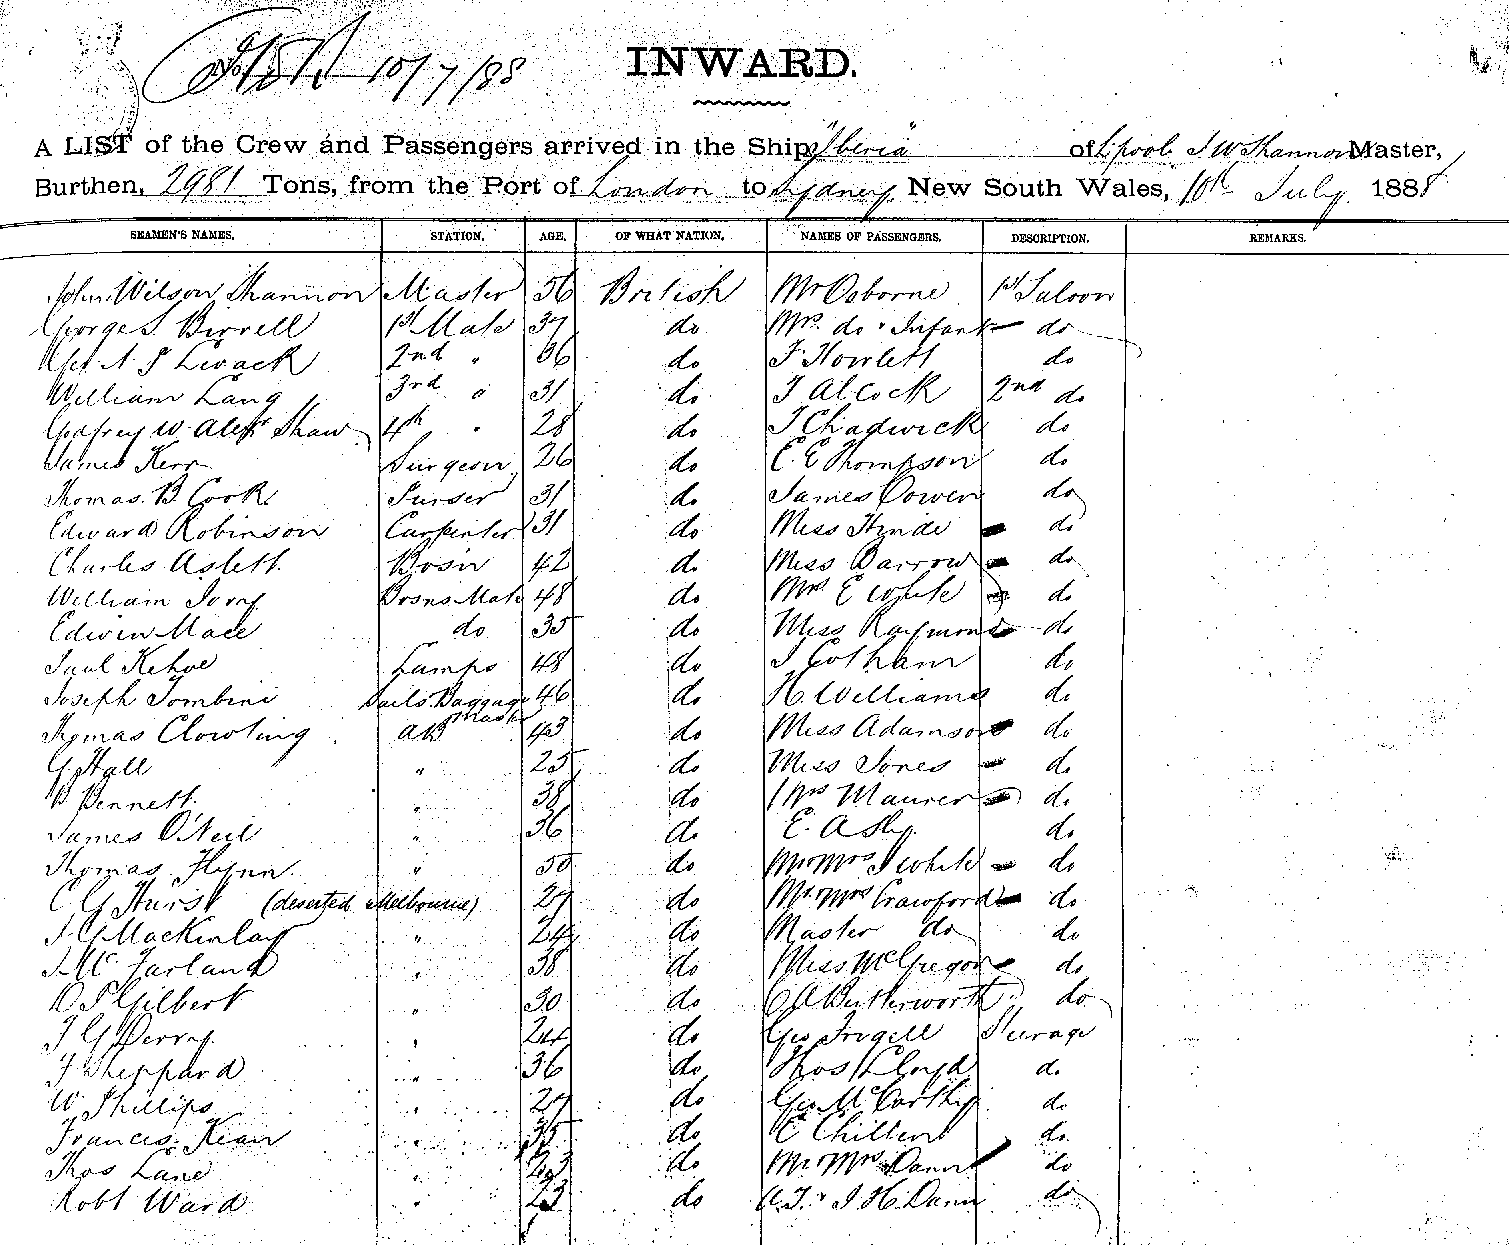 10/7/88
INWARD.
A LIST of the Crew and Passengers arrived in the Ship "Iberia" of L'pool J W Shannon Master,
Burthen, 2981 Tons, from the Port of London to Sydney, New South Wales, 10th July 1888
SEAMEN'S NAMES. STATION. AGE. OF WHAT NATION. NAMES OF PASSENGERS. DESCRIPTION. REMARKS.
John Wilson Shannon Master 56 British Mr Osborne 1st Saloon
George S. Birrell 1st Mate 37 do Mrs. do & Infant do
2nd " 36 do F Howlett do
William Lang 3rd " 31 do T Alcock 2nd do
Godfrey W. Alexr Shaw 4th " 28 do T Chadwick do
James Kerr Surgeon 26 do C. E Thompson do
Thomas B. Cook Purser 31 do James Cowen do
Edward Robinson Carpenter 31 do Miss Hinde do
Charles Aslett Bosn 42 do Miss Barrow do
William Ivory Bosns Mate 48 do Mrs E White do
Edwin Mace do 35 do Miss Raymond do
Paul Kehoe Lamps 48 do J Cotham do
Joseph Tombini Sails. Baggage Master 46 do H. Williams do
Thomas Clowting AB 43 do Miss Adamson do
G Hall " 25 do Miss Jones do
Bennett " 38 do Mrs Maurer do
James O'Neil " 36 do E. Ashp. do
Thomas Flynn " 50 do Mr & Mrs J White do
C G Hurst (deserted Melbourne) 27 do Mr & Mrs Crawford do
J. G Mackinlay " 24 do Master do do
J. McFarland " 38 do Miss McGregor do
D. S Gilbert " 30 do C A Butterworth do
T G Perry " 24 do Geo Frugell Steerage
F Sheppard " 36 do Thos Lloyd do
W. Phillips " 27 do Geo McCarthy do
Francis Kean " 35 do C Chilton do
Thos Lane " 23 do Mr & Mrs Dann do
Robt Ward " 23 do A. T. & J H. Dann do